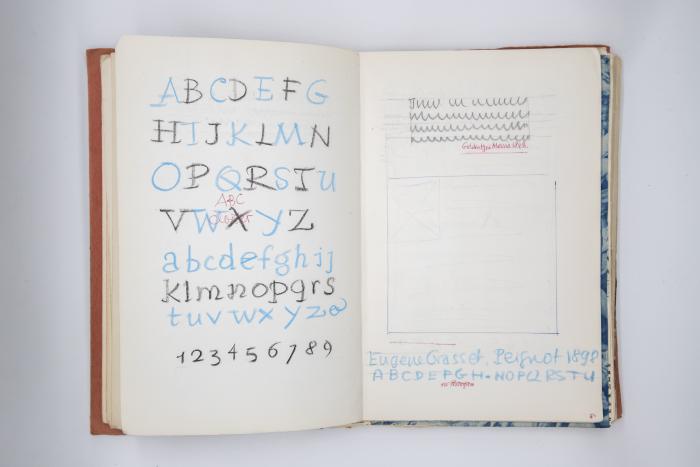 ABCDEFG
HIJKLMN
OPQRSTU
ABC
VWXYZ
abcdefghijj
klmnopqrs
tuvwxyz@
123456789
Eugene Grasset, Peignot 1898
ABCDEFGH-NOPQRSTU